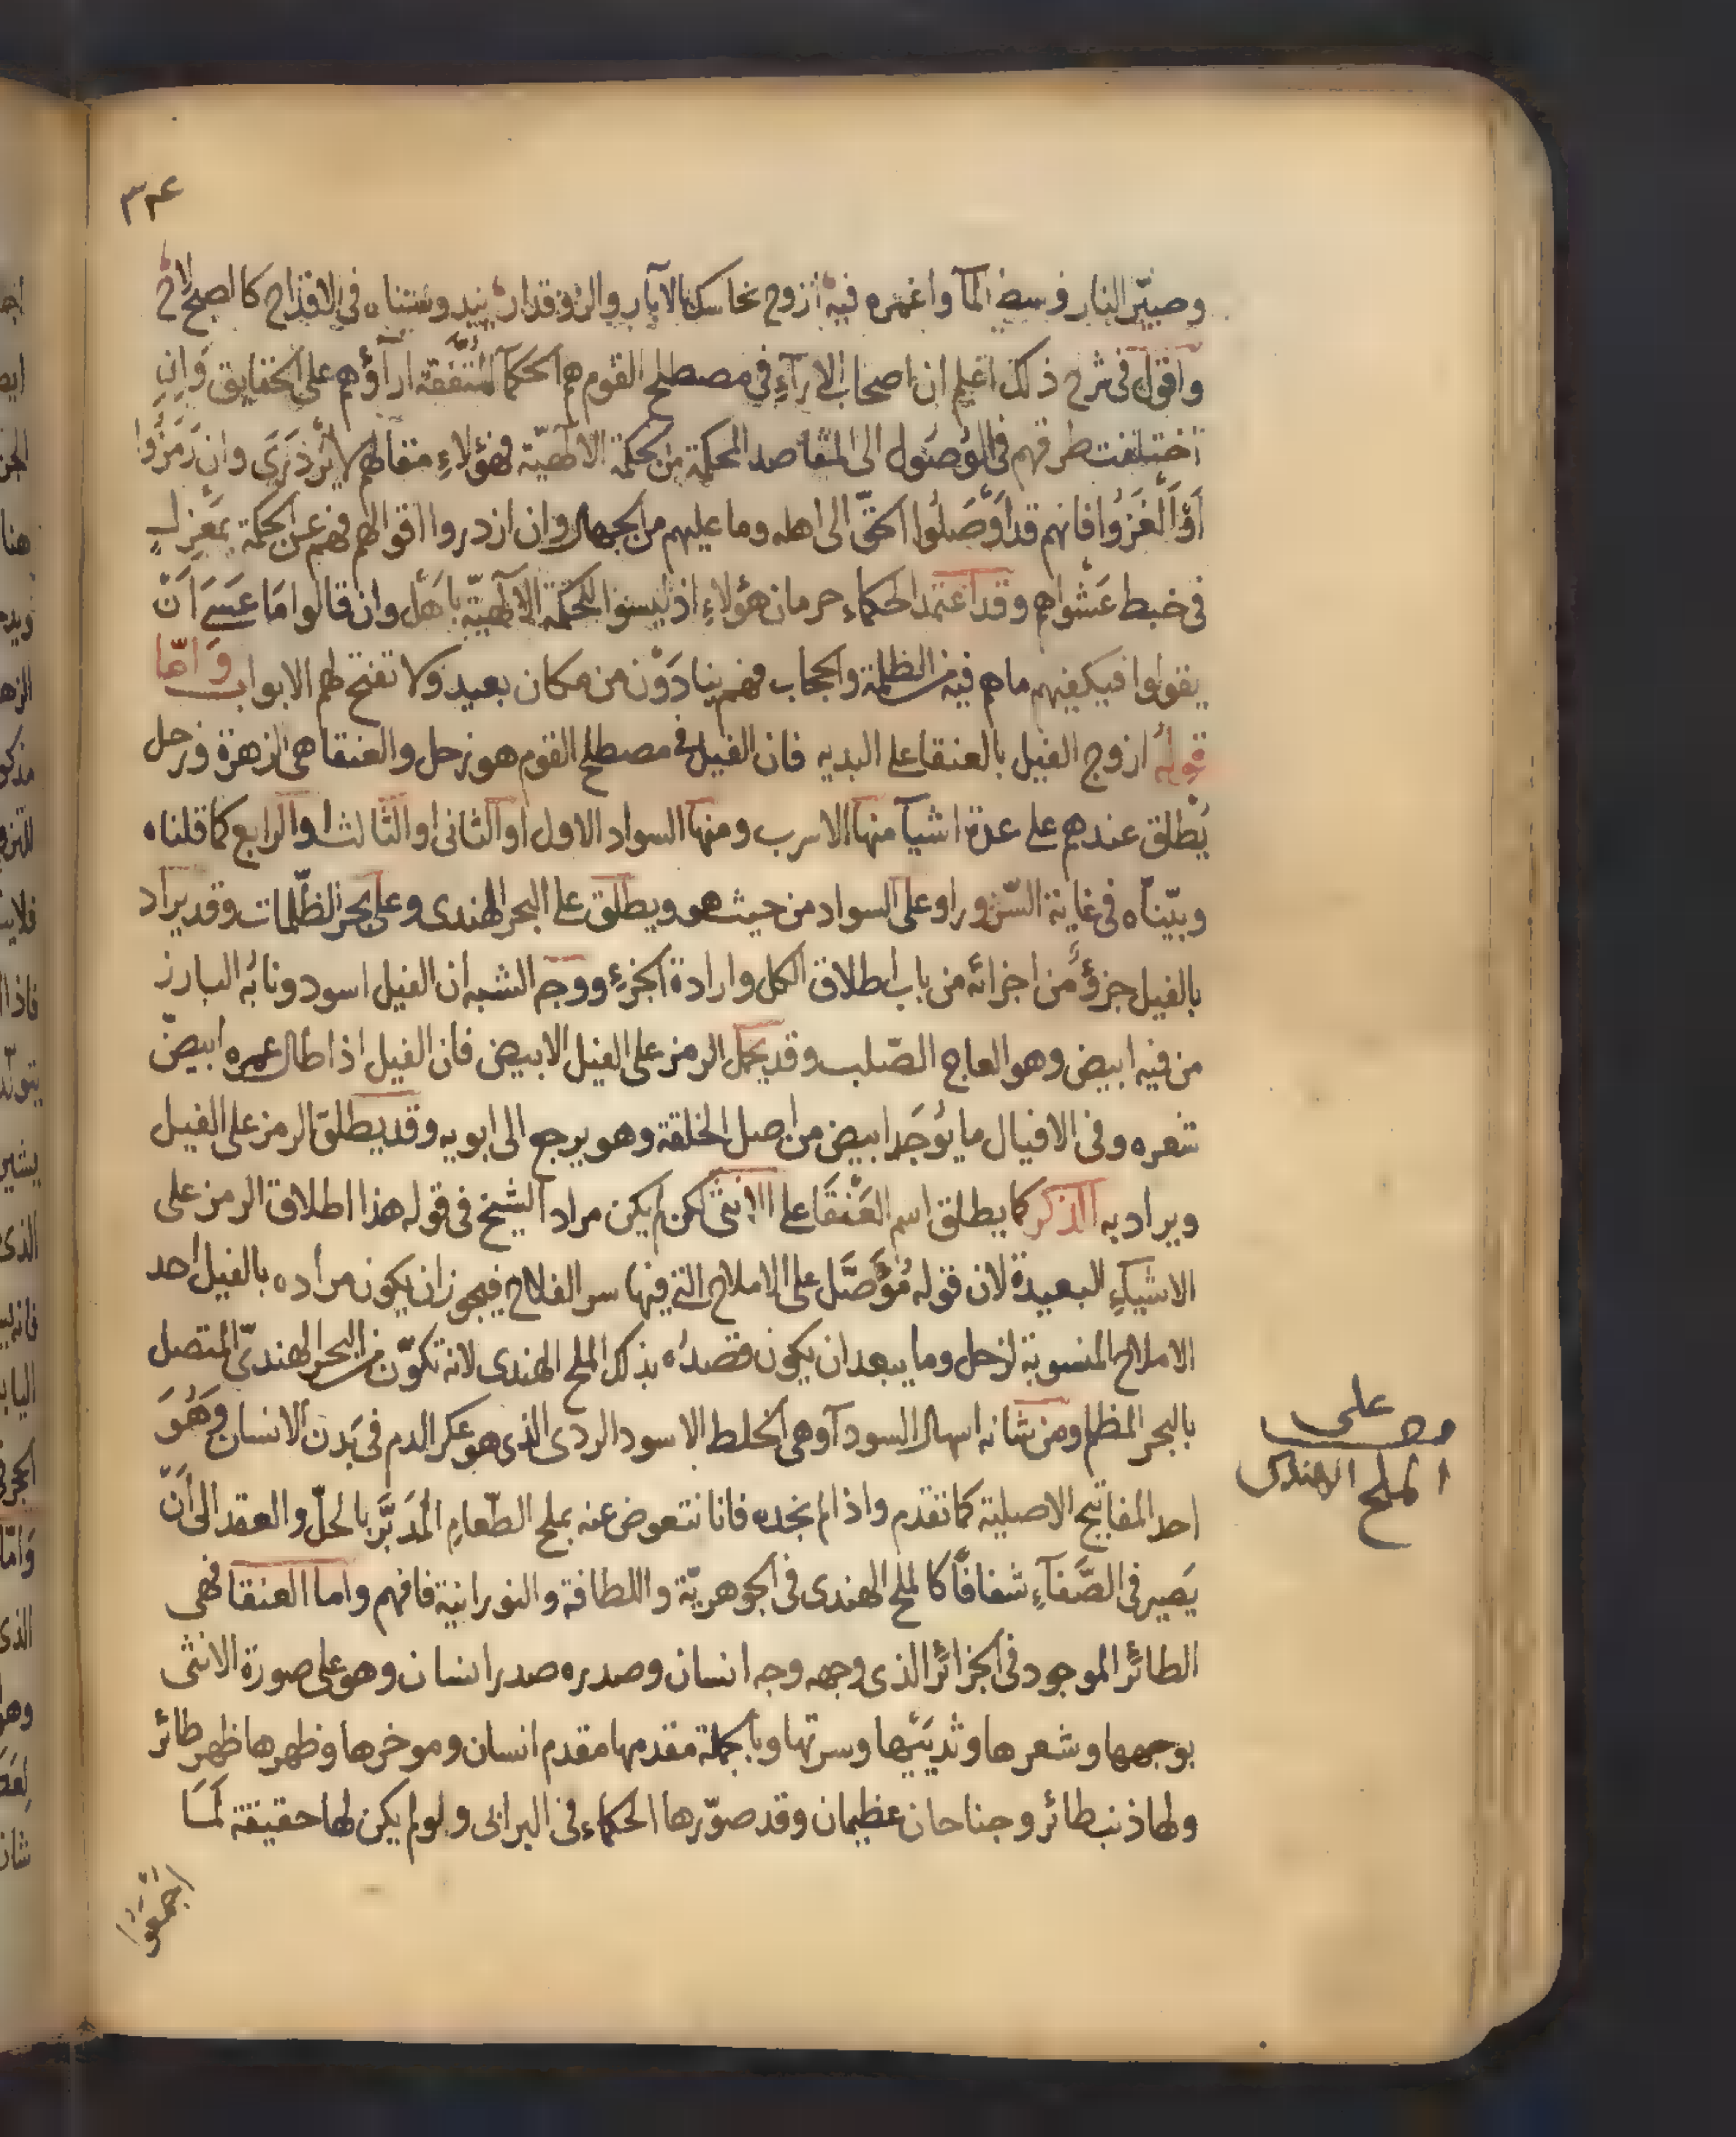 ٣٣٤
وصيّر النار وسط المآ واغمره فيه ازوج نحاسك بالابار والروقدار بنيد وسنناه في الاقداح كالصبح لاح
واقول في شرح ذلك اعلم ان اصحاب الارآء في مصطلح القوم هم الحكمآ المتفقة ارآؤهم على الحقايق وان
اختلفت طرقهم في الوصول الى المقاصد المحكمة من الحكمة الالهيّة فهؤلاء مقالهم لا يزدرى وان رمزوا
او الغزوا فانهم قد اوصلوا الحقّ الى اهله وما عليهم من الجهال وان ازدروا اقوالهم فهم عن الحكمة بمعزل
في خبط عشواهم وقد اعتمد الحكماء حرمان هؤلاء اذ ليسوا للحكمة الالهيّة باهل وان قالوا ما عسى ان
يقولوا فيكفيهم ما هم فيه من الظلمة والحجاب فهم ينادون من مكان بعيد ولا تفتح لهم الابواب وامّا
قوله ازوج الفيل بالعنقا على البديه فان الفيل في مصطلح القوم هو زحل والعنقا هي الزهرة فزحل
يُطلق عندهم على عدة اشيآ منها الاسرب ومنها السواد الاول او الثاني او الثالث او الرابع كما قلناه
وبيّناه في غاية السّرور او على السواد من حيث هو ويطلق على البحر الهندى وعلى بحر الظّلمات وقد يراد
بالفيل جزؤ من اجزائه من باب اطلاق الكل وارادة الجزء ووجه الشبه ان الفيل اسود ونابُه البارز
من فيه ابيض وهو العاج الصّلب وقد يحمل الرمز على الفيل الابيض فان الفيل اذا طال عمره ابيضّ
شعره وفي الافيال ما يُوجَد ابيض من اصل الخلقة وهو يرجع الى ابويه وقد يطلق الرمز على الفيل
ويراد به الذكر كما يطلق اسم العَنْقَا على الانثى لكن لم يكن مراد الشيخ في قوله هذا اطلاق الرمز على
الاشيآء البعيدة لان قوله مُؤَصَّل على الاملاح التي فيها سر الفلاح فيجوز ان يكون مراده بالفيل احد
الاملاح المنسوبة لزحل وما يبعد ان يكون قصدُه بذلك الملح الهندى لانه تكوّن من البحر الهندىّ المتصل
بالبحر المظلم ومن شانه اسهال السودآ وهي الخلط الاسود الردى الذى هو عكر الدم في بَدن الانسان وَهُوَ
احد المفاتيح الاصلية كما تقدم واذا لم نجده فانا نتعوض عنه بملح الطّعامِ المُدَبَّر بالحلّ والعقد الى اَنْ
يَصير في الصَّفآءِ شفافًا كالملح الهندى في الجوهريّة واللطافة والنورانية فافهم واما العنقا فهي
الطائر الموجود في الجزائر الذى وجهه وجه انسان وصدره صدر انسان وهو على صورة الانثى
بوجهها وشعرها وثدييها وسرتها وبالجملة مقدمها مقدم انسان وموخرها وظهرها ظهر طائر
ولها ذنب طائر وجناحان عظيمان وقد صوّرها الحكماء في البرابى ولو لم يكن لها حقيقة لَمَا
اجمعوا
على
الملح الهندى